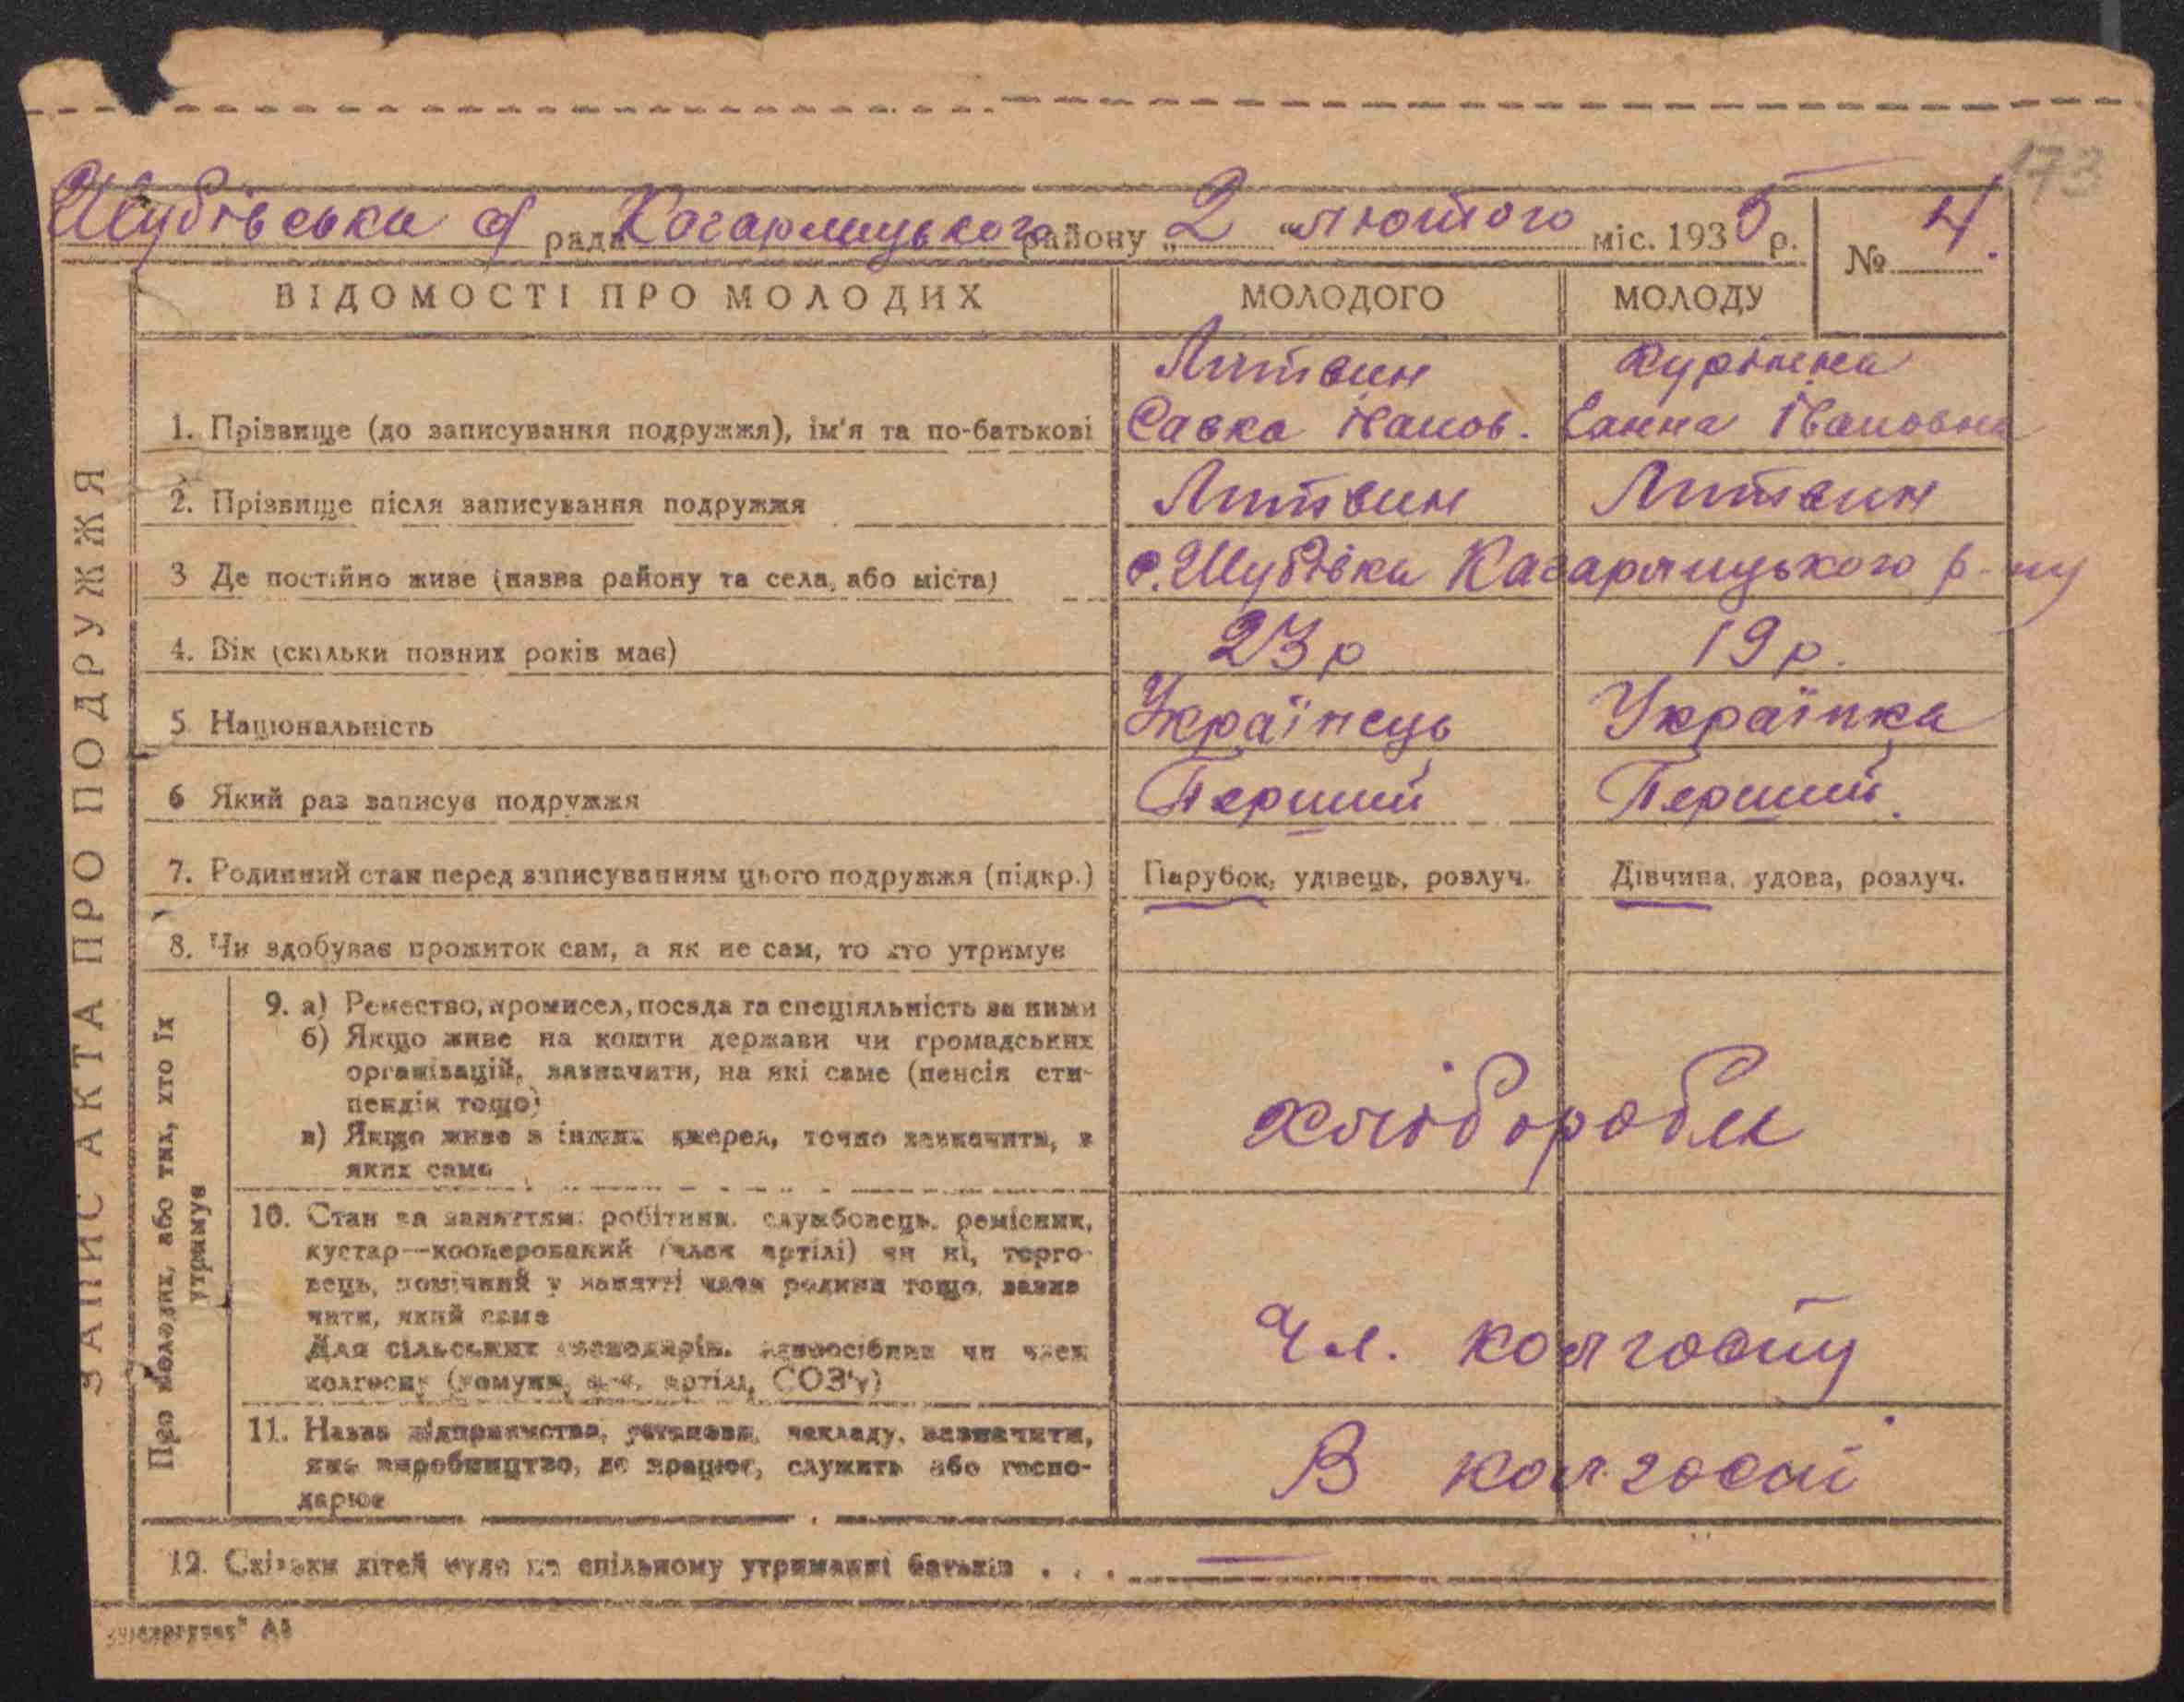 173
Шубівська с/ рада Кагарлицького району „2“ лютого міс. 1935 р. № 4.
ВІДОМОСТІ ПРО МОЛОДИХ МОЛОДОГО МОЛОДУ
Литвин
Савка Іванов. Ганна Івановна
1. Прізвище (до записування подружжя), ім'я та по-батькові
2. Прізвище після записування подружжя Литвин Литвин
3 Де постійно живе (назва району та села, або міста) с. Шубівка Кагарлицького р-ну
4. Вік (скільки повних років має) 23 р 19 р.
5 Національність Українець Українка
6 Який раз записує подружжя Перший Перший.
7. Родинний стан перед записуванням цього подружжя (підкр.) Парубок, удівець, розлуч. Дівчина, удова, розлуч.
8. Чи здобуває прожиток сам, а як не сам, то хто утримує
ЗАПИС АКТА ПРО ПОДРУЖЖЯ
Про молодих, або тих, хто їх
утримує
9. а) Ремество, промисел, посада та спеціяльність за ними
б) Якщо живе на кошти держави чи громадських
організацій, зазначити, на які саме (пенсія сти-
пендія тощо)
в) Якщо живе з інших джерел, точно зазначити, з
яких саме
хлібороби
10. Стан за заняттям: робітник, службовець, ремісник,
кустар—кооперований (член артілі) чи ні, торго-
вець, помічний у занятті член родини тощо, зазна
чити, який саме
Для сільських господарів: одноосібник чи член
колгоспу (комуни, артілі, СОЗ'у)
Чл. колгоспу
11. Назва підприємства, установи, закладу, зазначити,
яке виробництво, де працює, служить або госпо-
дарює
В колгоспі
12. Скільки дітей було на спільному утриманні батьків . . .